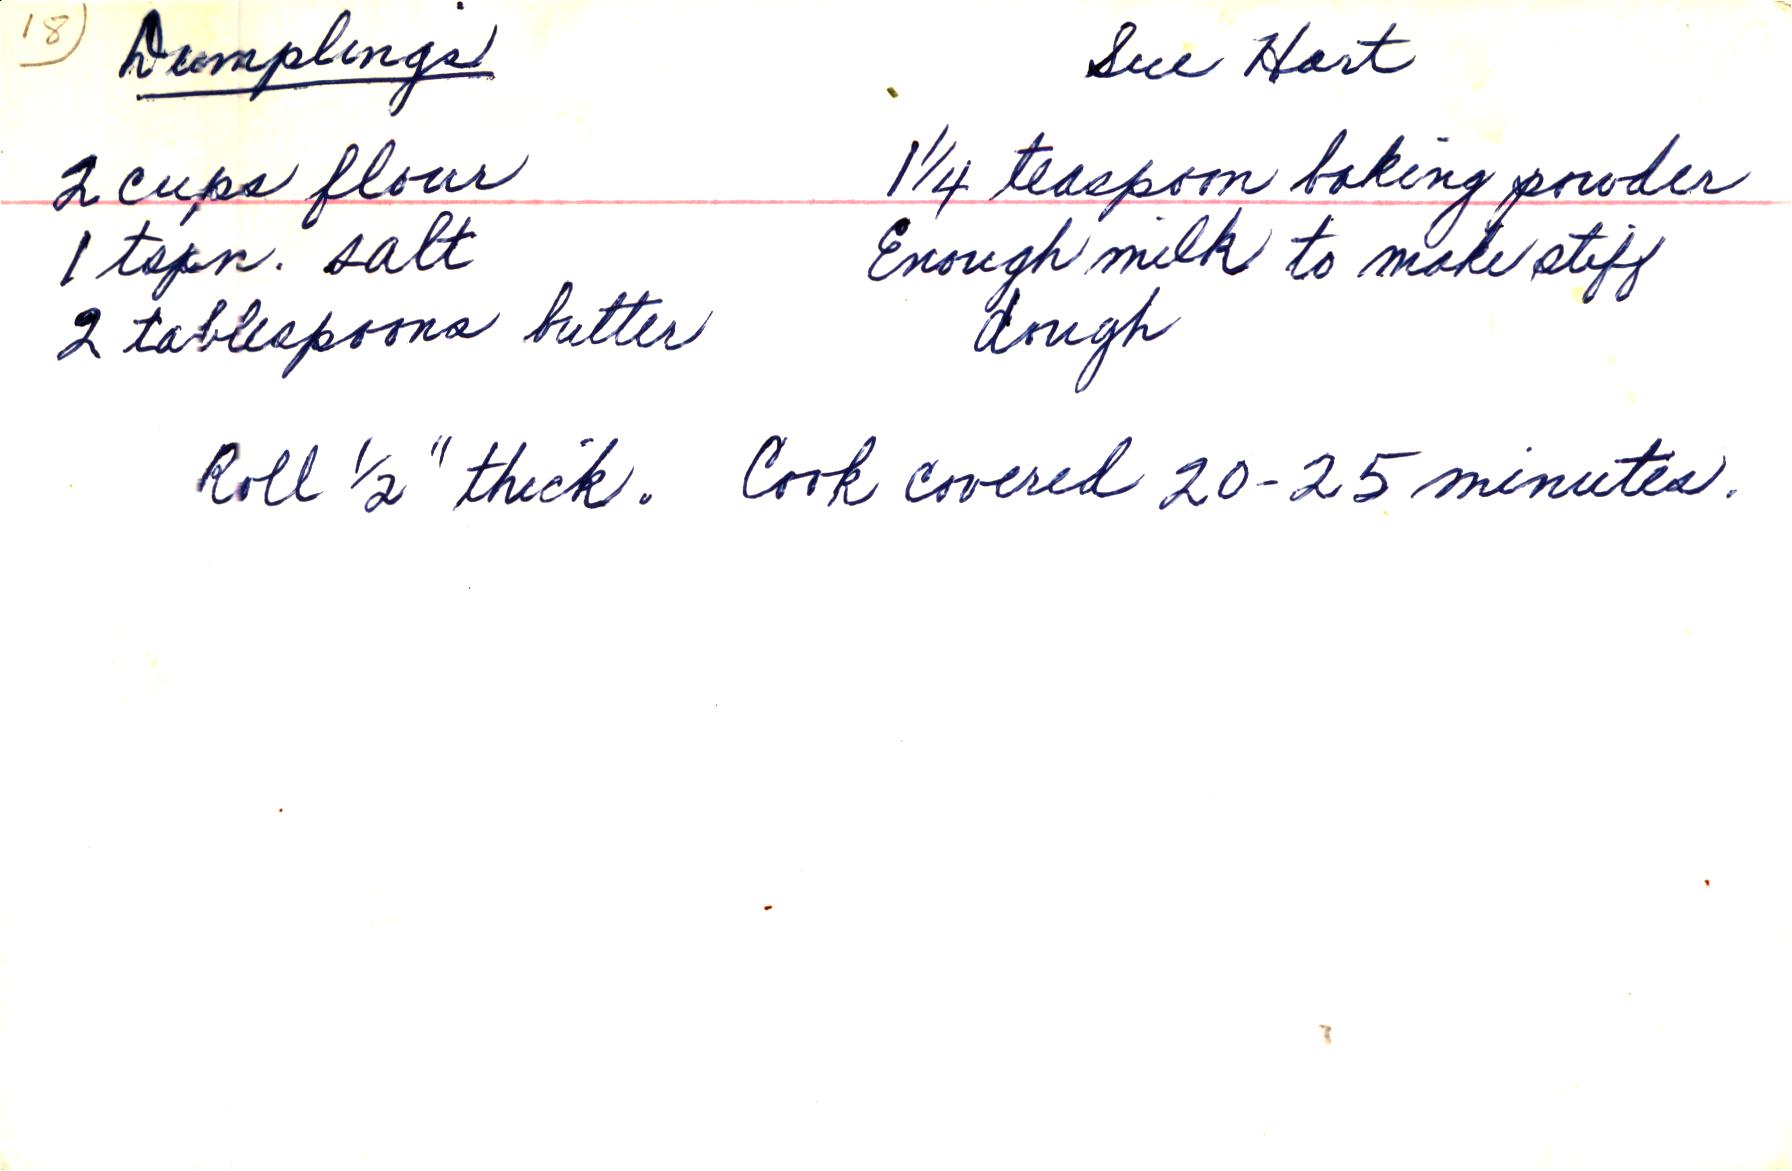 18)
Dumplings
Sue Hart
2 cups flour
1 tspn. salt
2 tablespoons butter
1 1/4 teaspoon baking powder
Enough milk to make stiff
dough
Roll 1/2" thick. Cook covered 20-25 minutes.